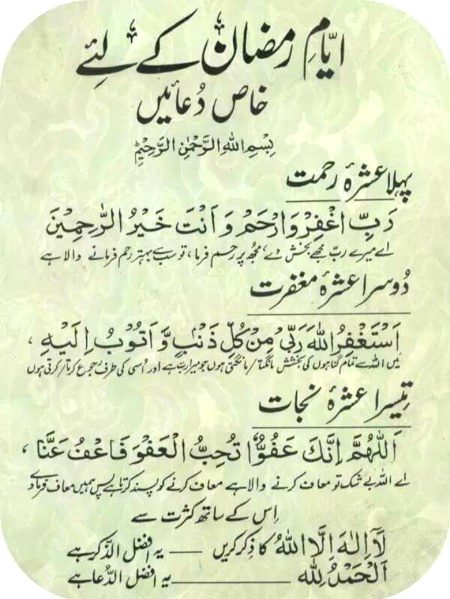 ایّامِ رمضان کے لئے
خاص دُعائیں
بِسْمِ اللهِ الرَّحْمٰنِ الرَّحِيْمِ
پہلا عشرۂ رحمت
رَبِّ اغْفِرْ وَارْحَمْ وَاَنْتَ خَيْرُ الرّٰحِمِيْنَ
اے میرے ربّ مجھے بخش دے، مجھ پر رحم فرما، تو سب سے بہتر رحم فرمانے والا ہے
دُوسرا عشرۂ مغفرت
اَسْتَغْفِرُ اللهَ رَبِّىْ مِنْ كُلِّ ذَنْۢبٍ وَّاَتُوْبُ اِلَيْهِ ،
میں اللہ سے تمام گناہوں کی بخشش مانگتا/مانگتی ہوں جو میرا رب ہے اور اُسی کی طرف رجوع کرتا/کرتی ہوں
تیسرا عشرۂ نجات
اَللّٰهُمَّ اِنَّكَ عَفُوٌّ تُحِبُّ الْعَفْوَ فَاعْفُ عَنَّا ،
اے اللہ بے شک تو معاف کرنے والا ہے معاف کرنے کو پسند کرتا ہے پس ہمیں معاف فرما دے
اِس کے ساتھ کثرت سے
لَآ اِلٰهَ اِلَّا اللهُ کا ذِکر کریں — یہ افضل الذِّکر ہے
اَلْحَمْدُ لِلّٰهِ — یہ افضل الدُّعا ہے